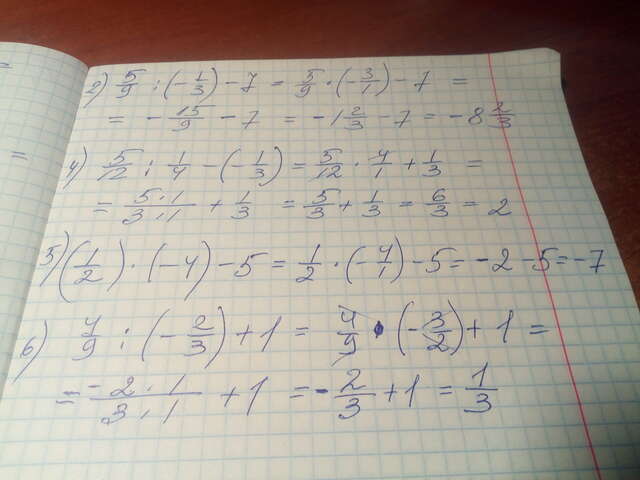 2) 5/9 : (-1/3) - 7 = 5/9 · (-3/1) - 7 =
= -15/9 - 7 = -1 2/3 - 7 = -8 2/3
4) 5/12 : 1/4 - (-1/3) = 5/12 · 4/1 + 1/3 =
= 5·1/3·1 + 1/3 = 5/3 + 1/3 = 6/3 = 2
5) (1/2) · (-4) - 5 = 1/2 · (-4/1) - 5 = -2 - 5 = -7
6) 4/9 : (-2/3) + 1 = 4/9 · (-3/2) + 1 =
= -2·1/3·1 + 1 = -2/3 + 1 = 1/3